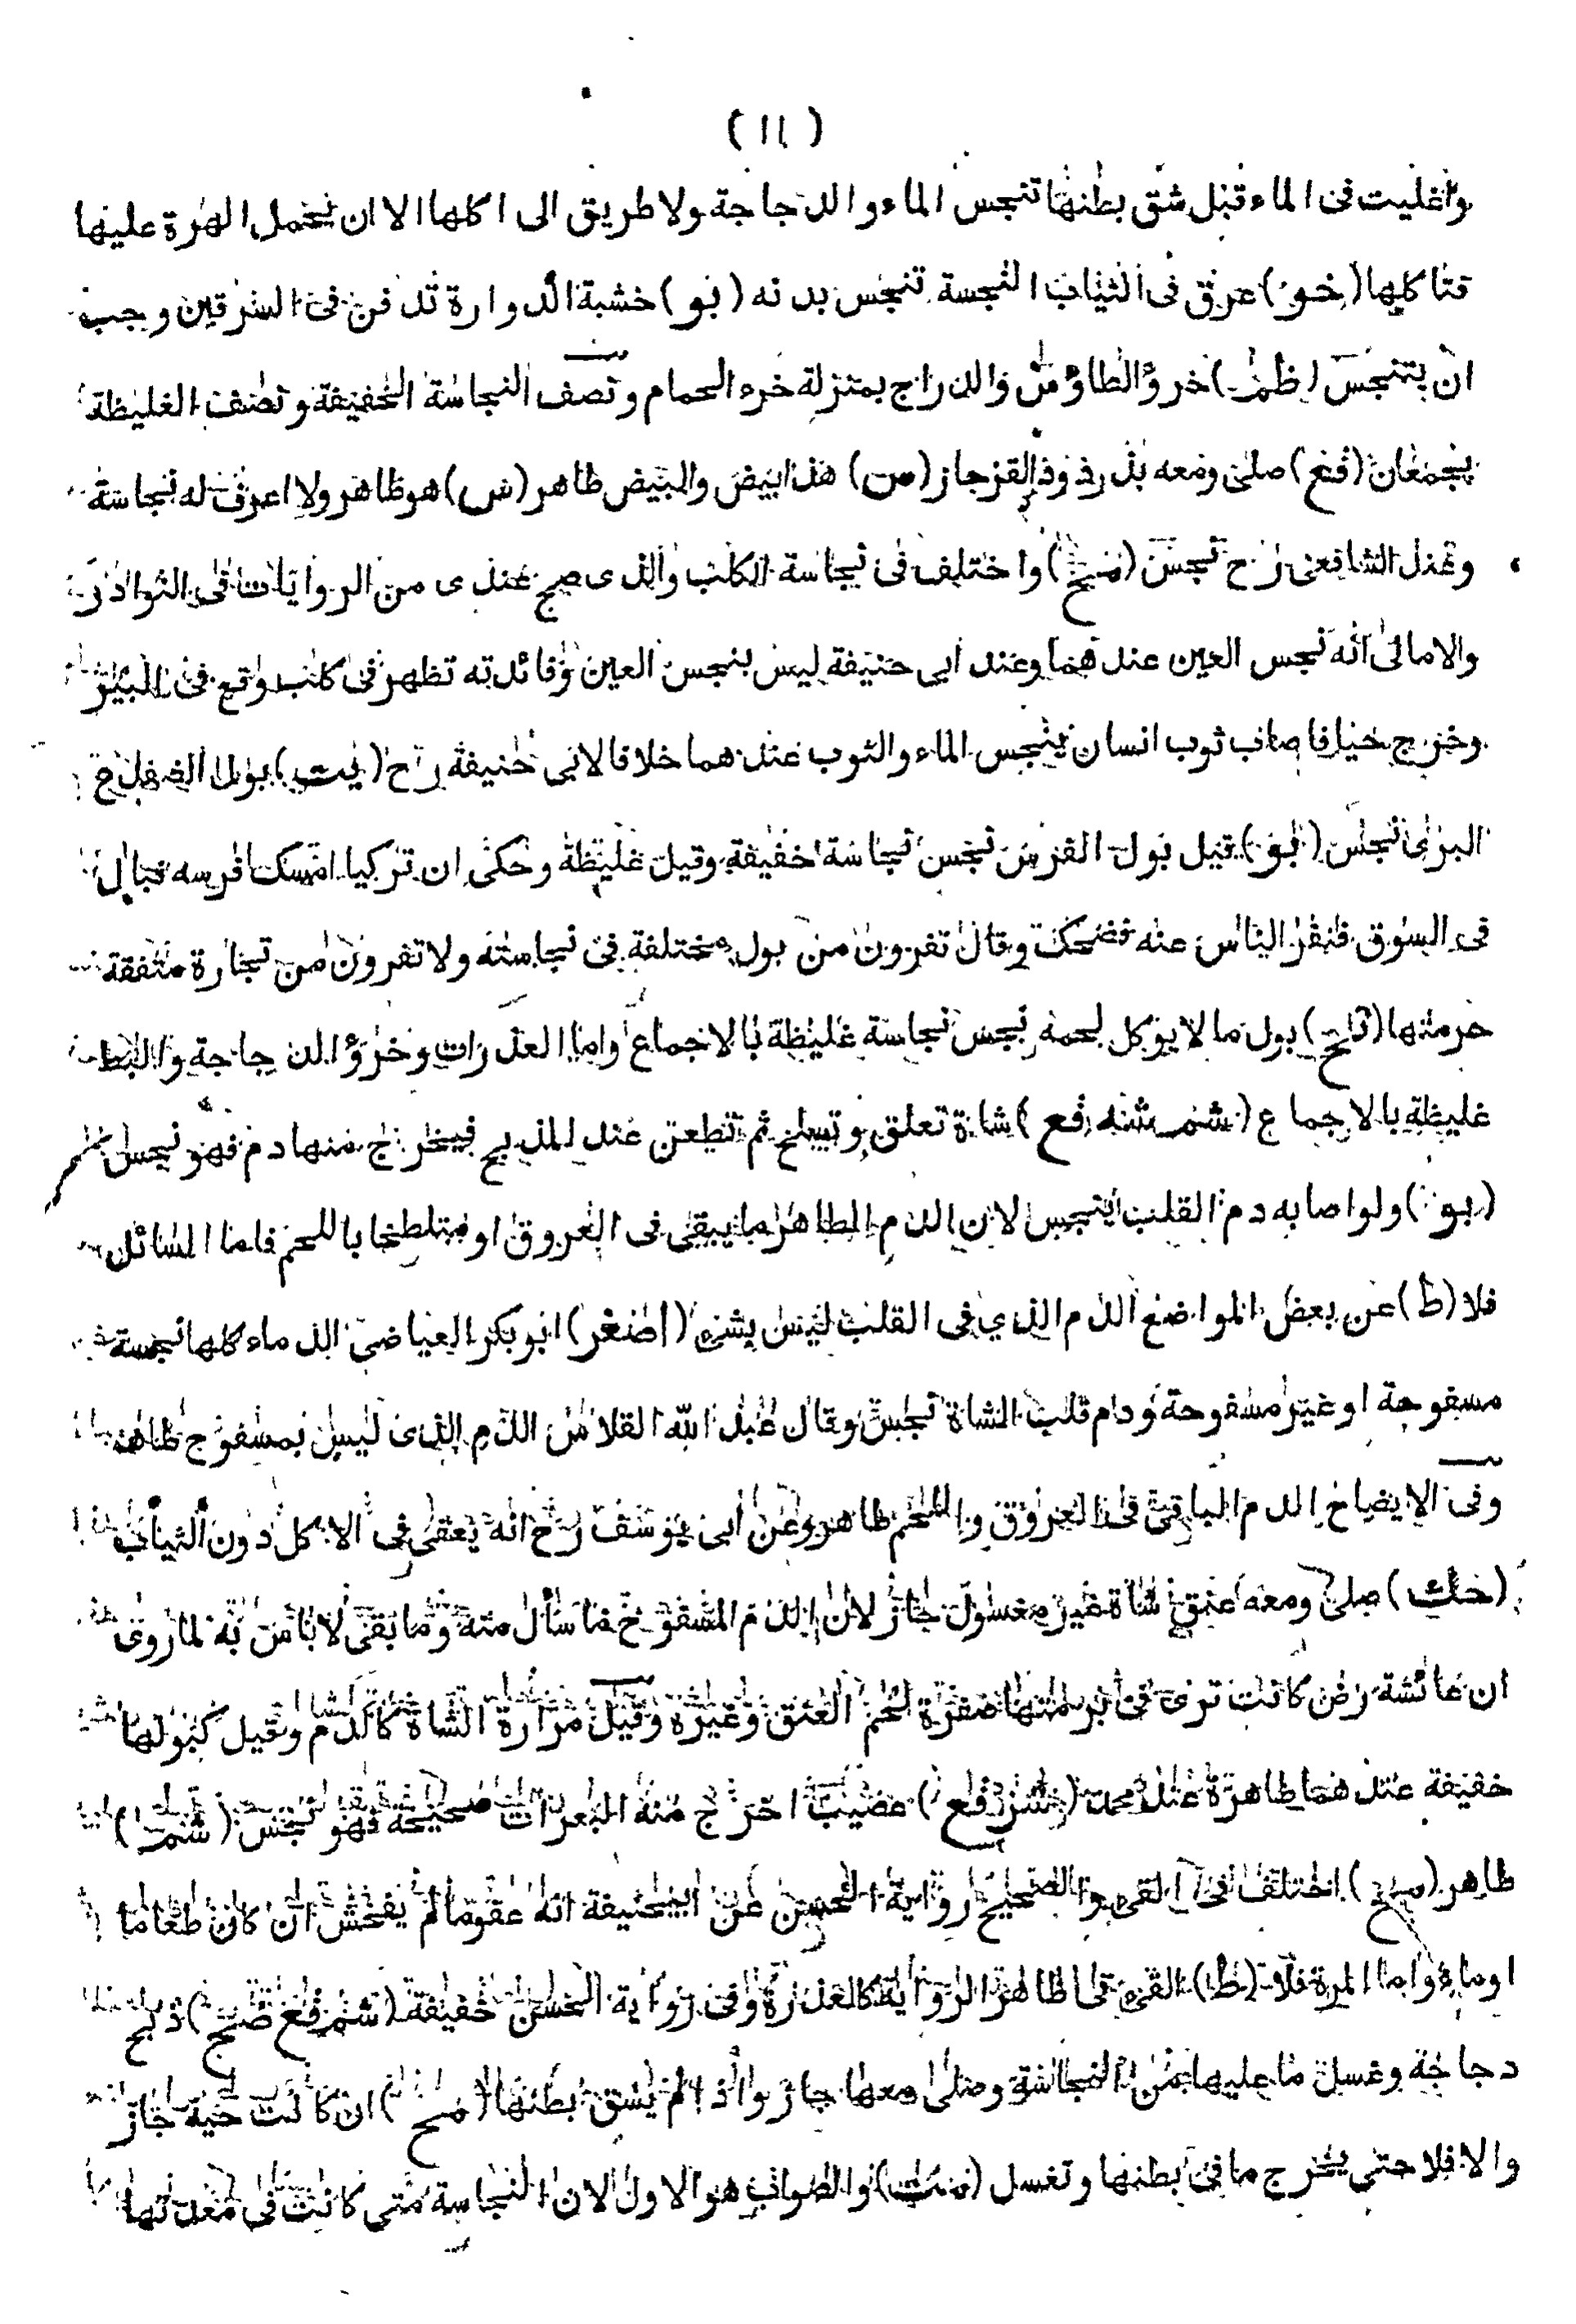 (١١)
واغليت فى الماء قبل شق بطنها تنجس الماء والدجاجة ولا طريق الى اكلها الا ان يحمل الهرة عليها
فتاكلها (خو) عرق فى الثياب النجسة تنجس بدنه (بو) خشبة الدوارة تدفن فى السرقين وجب
ان يتنجس (ظم) خرؤ الطاوس والدراج بمنزلة خرء الحمام ونصف النجاسة الخفيفة ونصف الغليظة
يجمعان (فع) صلى ومعه بذر فى ذ القز جاز (من) هذا بيض والبيض طاهر (س) هو طاهر ولا اعرف له نجاسة
وعند الشافعى رح نجس (صح) واختلف فى نجاسة الكلب والذى صح عندى من الروايات فى النوادر
والامالى انه نجس العين عندهما وعند ابى حنيفة ليس بنجس العين وفائدته تظهر فى كلب وقع فى البئر
وخرج حيا فاصاب ثوب انسان ينجس الماء والثوب عندهما خلافا لابى حنيفة رح (يت) بول الضفدع
البرى نجس (بو) قيل بول الفرس نجس نجاسة خفيفة وقيل غليظة وحكى ان تركيا امسك فرسه فبال
فى السوق فنفر الناس عنه فضحك وقال تفرون من بول مختلفة فى نجاسته ولا تفرون من تجارة متفقة
حرمتها (تح) بول ما لا يؤكل لحمه نجس نجاسة غليظة بالاجماع واما العذرات وخرؤ الدجاجة والبط
غليظة بالاجماع (شم شه فع) شاة تعلق وتسلخ ثم تطعن عند المذبح فيخرج منها دم فهو نجس
(بو) ولو اصابه دم القلب يتنجس لان الدم الطاهر ما يبقى فى العروق او متلطخا باللحم فاما السائل
فلا (ط) عن بعض المواضع الدم الذي فى القلب ليس بشئ (اصغر) ابو بكر العياضى الدماء كلها نجسة
مسفوحة او غير مسفوحة ودم قلب الشاة نجس وقال عبد الله القلاس الدم الذى ليس بمسفوح طاهر
وفى الايضاح الدم الباقى فى العروق واللحم طاهر وعن ابى يوسف رح انه يعفى فى الاكل دون الثياب
(خك) صلى ومعه عنق شاة غير مغسول جاز لان الدم المسفوح ما سال منه وما بقى لا باس به لما روى
ان عائشة رض كانت ترى فى برمتها صفرة لحم العنق وغيره وقيل مرارة الشاة كالدم وقيل كبولها
خفيفة عندهما طاهرة عند محمد (شز فع) خرج منه البعرات صحيحة فهو نجس (شم)
طاهر (صح) اختلف فى القئ والصحيح رواية الحسن عن ابيحنيفة انه عفو ما لم يفحش ان كان طعاما
او ماء واما المرة فلا (ط) القئ فى ظاهر الرواية كالعذرة وفى رواية الحسن خفيفة (شم فع صح) ذبح
دجاجة وغسل ما عليها من النجاسة وصلى معها جاز واذا لم يشق بطنها (صح) ان كانت حية جاز
والا فلا حتى يخرج ما فى بطنها وتغسل والصواب هو الاول لان النجاسة متى كانت فى معدنها